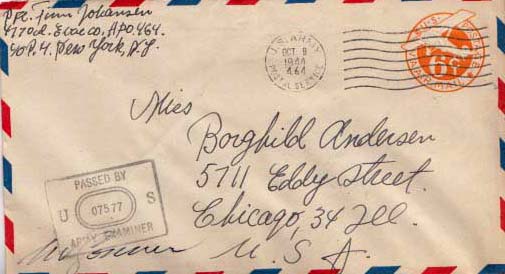 Pfc. Finn Johansen
A.P.O. 464
New York, N.Y.
U.S. ARMY
OCT 9
1944
464
POSTAL SERVICE
U.S. POSTAGE
6¢
VIA AIR MAIL
Miss
Borghild Andersen
5711 Eddy Street.
Chicago, 34 Ill.
U. S. A.
PASSED BY
U 07577 S
ARMY EXAMINER